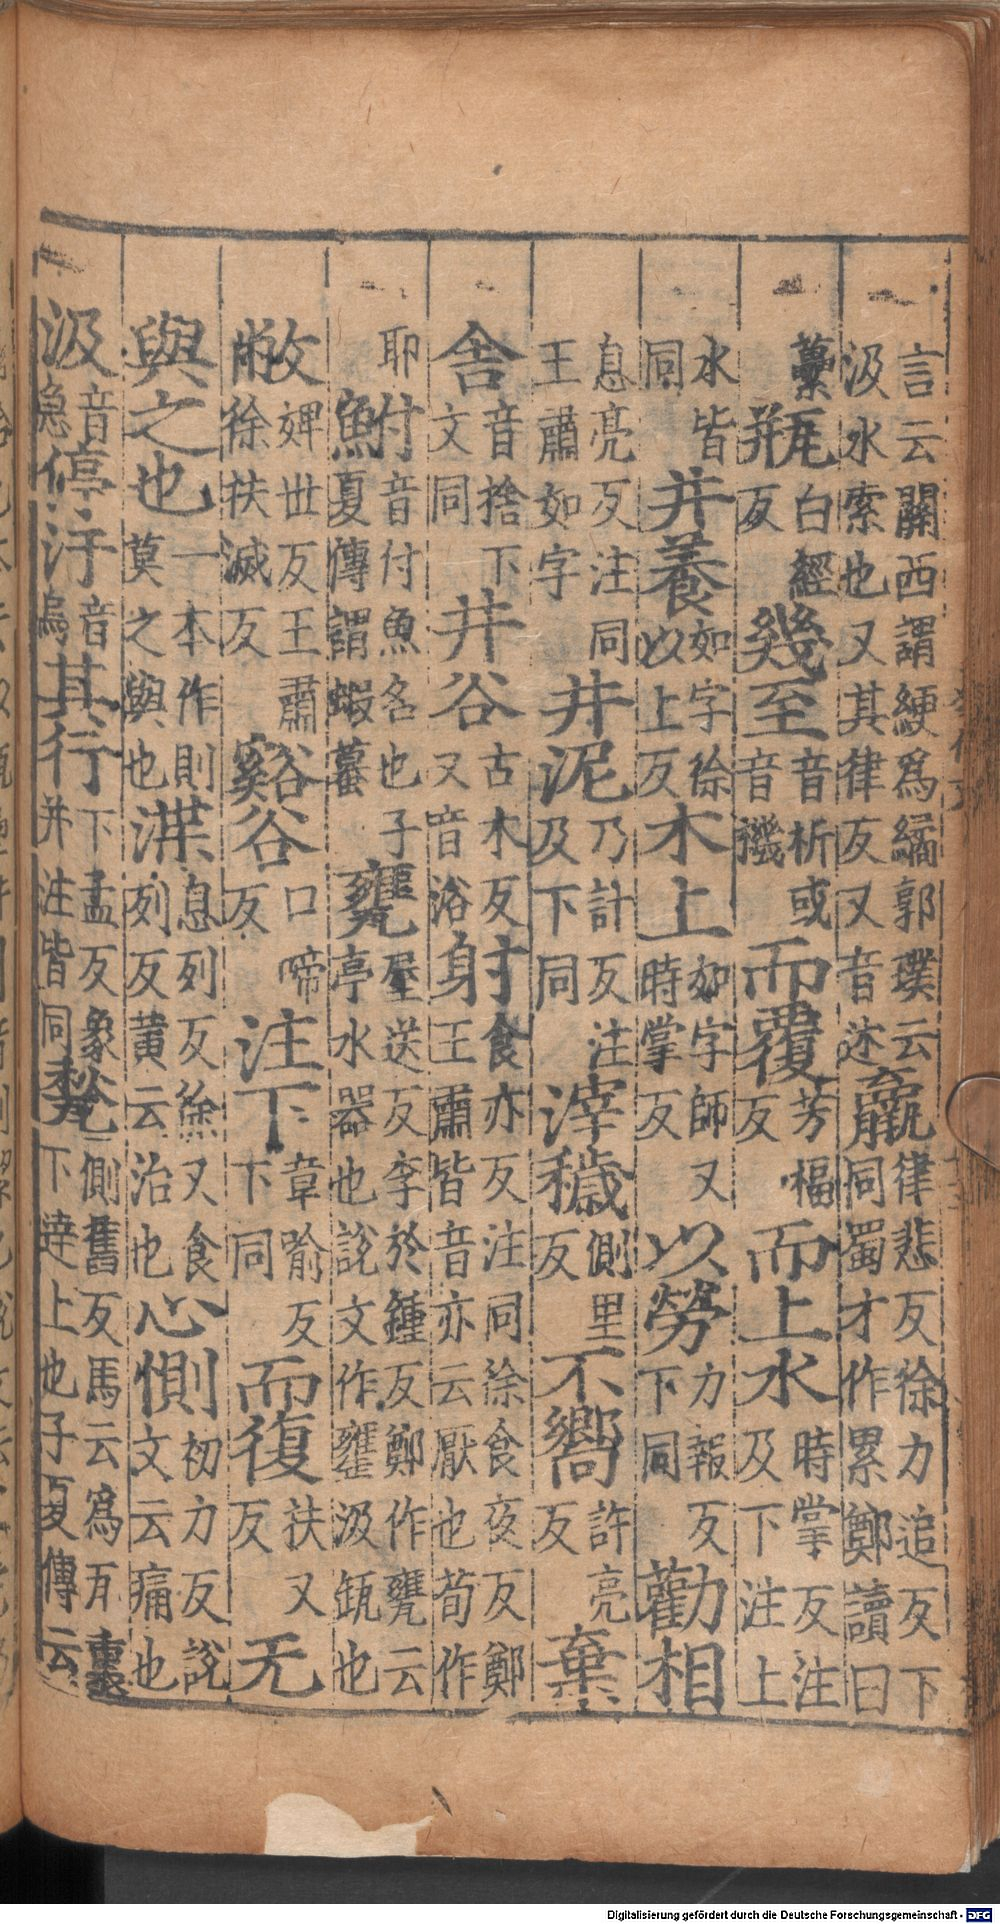 言云關西謂綆爲繘郭璞云
汲水索也又其律反又音述
羸
律悲反徐力追反下
同蜀才作累鄭讀曰
虆
瓶
白經
反
幾至
音祈或
音譏
而覆
芳福
反
而上水
時掌反注
及下注上
水皆
同
井養
如字徐
以上反
木上
如字師又
時掌反
以勞
力報反
下同
勸相
息亮反注同
王肅如字
井泥
乃計反注
及下同
滓穢
側里
反
不嚮
許亮
反
棄
舍
音捨下
文同
井谷
古木反
又音浴
射
食亦反注同徐食夜反鄭
王肅皆音亦云厭也荀作
耶
鮒
音付魚名也子
夏傳謂蝦蟇
甕
屋送反李於鍾反鄭作甕云
亭水器也說文作罋汲缾也
敝
婢世反王肅
徐扶滅反
谿谷
口啼
反
注下
章喻反
下同
而復
扶又
反
无
與之也
一本作則
莫之與也
渫
息列反徐又食
列反黃云治也
心惻
初力反說
文云痛也
汲
音
急
停汙
音
烏
其行
下孟反象
并注皆同
甃
側舊反馬云爲瓦裏
下達上也子夏傳云
Digitalisierung gefördert durch die Deutsche Forschungsgemeinschaft - DFG